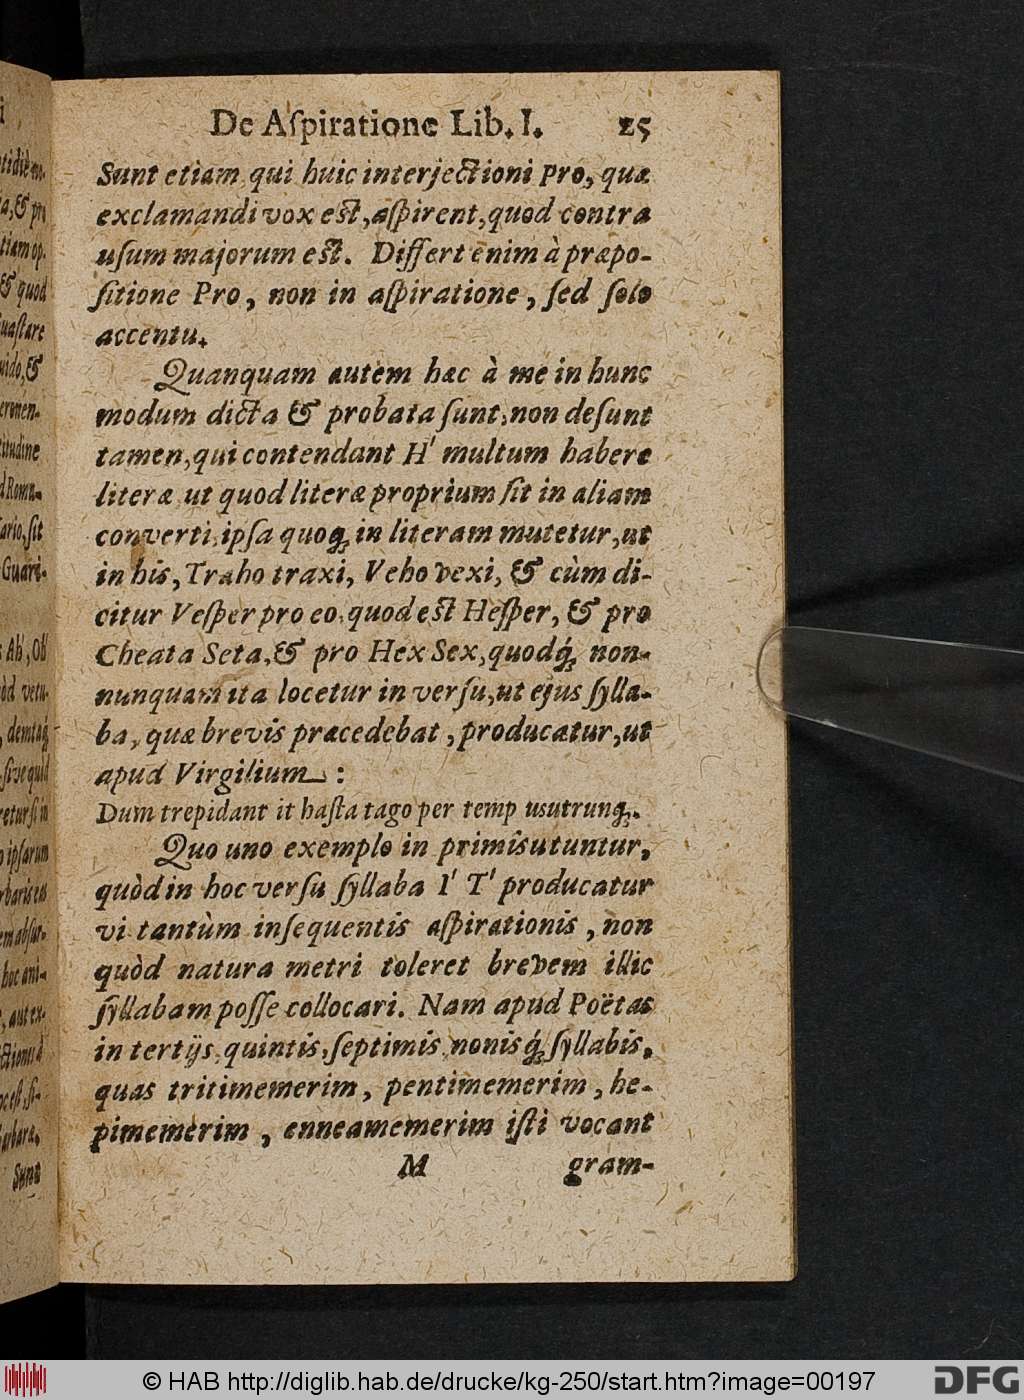 De Aſpiratione Lib. I. 25
Sunt etiam qui huic interjectioni Pro, quæ
exclamandi vox est, aſpirent, quod contra
uſum majorum est. Differt enim à præpo-
ſitione Pro, non in aſpiratione, ſed ſolo
accentu.
Quanquam autem hæc à me in hunc
modum dicta & probata ſunt, non deſunt
tamen, qui contendant H' multum habere
literæ ut quod literæ proprium ſit in aliam
converti, ipſa quoq; in literam mutetur, ut
in his, Traho traxi, Veho vexi, & cùm di-
citur Veſper pro eo, quod est Heſper, & pro
Cheata Seta, & pro Hex Sex, quodq́; non-
nunquam ita locetur in verſu, ut ejus ſylla-
ba, quæ brevis præcedebat, producatur, ut
apud Virgilium :
Dum trepidant it haſta tago per temp usutrunq;.
Quo uno exemplo in primis utuntur,
quòd in hoc verſu ſyllaba I' T' producatur
vi tantùm inſequentis aſpirationis, non
quòd natura metri toleret brevem illic
ſyllabam poſſe collocari. Nam apud Poëtas
in tertijs, quintis, ſeptimis, nonisq́; ſyllabis,
quas tritimemerim, pentimemerim, he-
pimemerim, enneamemerim iſti vocant
M gram-
ia, & pro
tiam op.
& quod
uaſtare
uido, &
titudine
ario, ſit
Guari-
s Ab', Ob'
òd vetu-
, demtaq́;
ſive quid
retur ſi in
o ipſarum
rbaris eas
em abſur-
hoc ani-
, aut ex-
oc eſt, ſi-
arbara,
Sunt
© HAB http://diglib.hab.de/drucke/kg-250/start.htm?image=00197
DFG